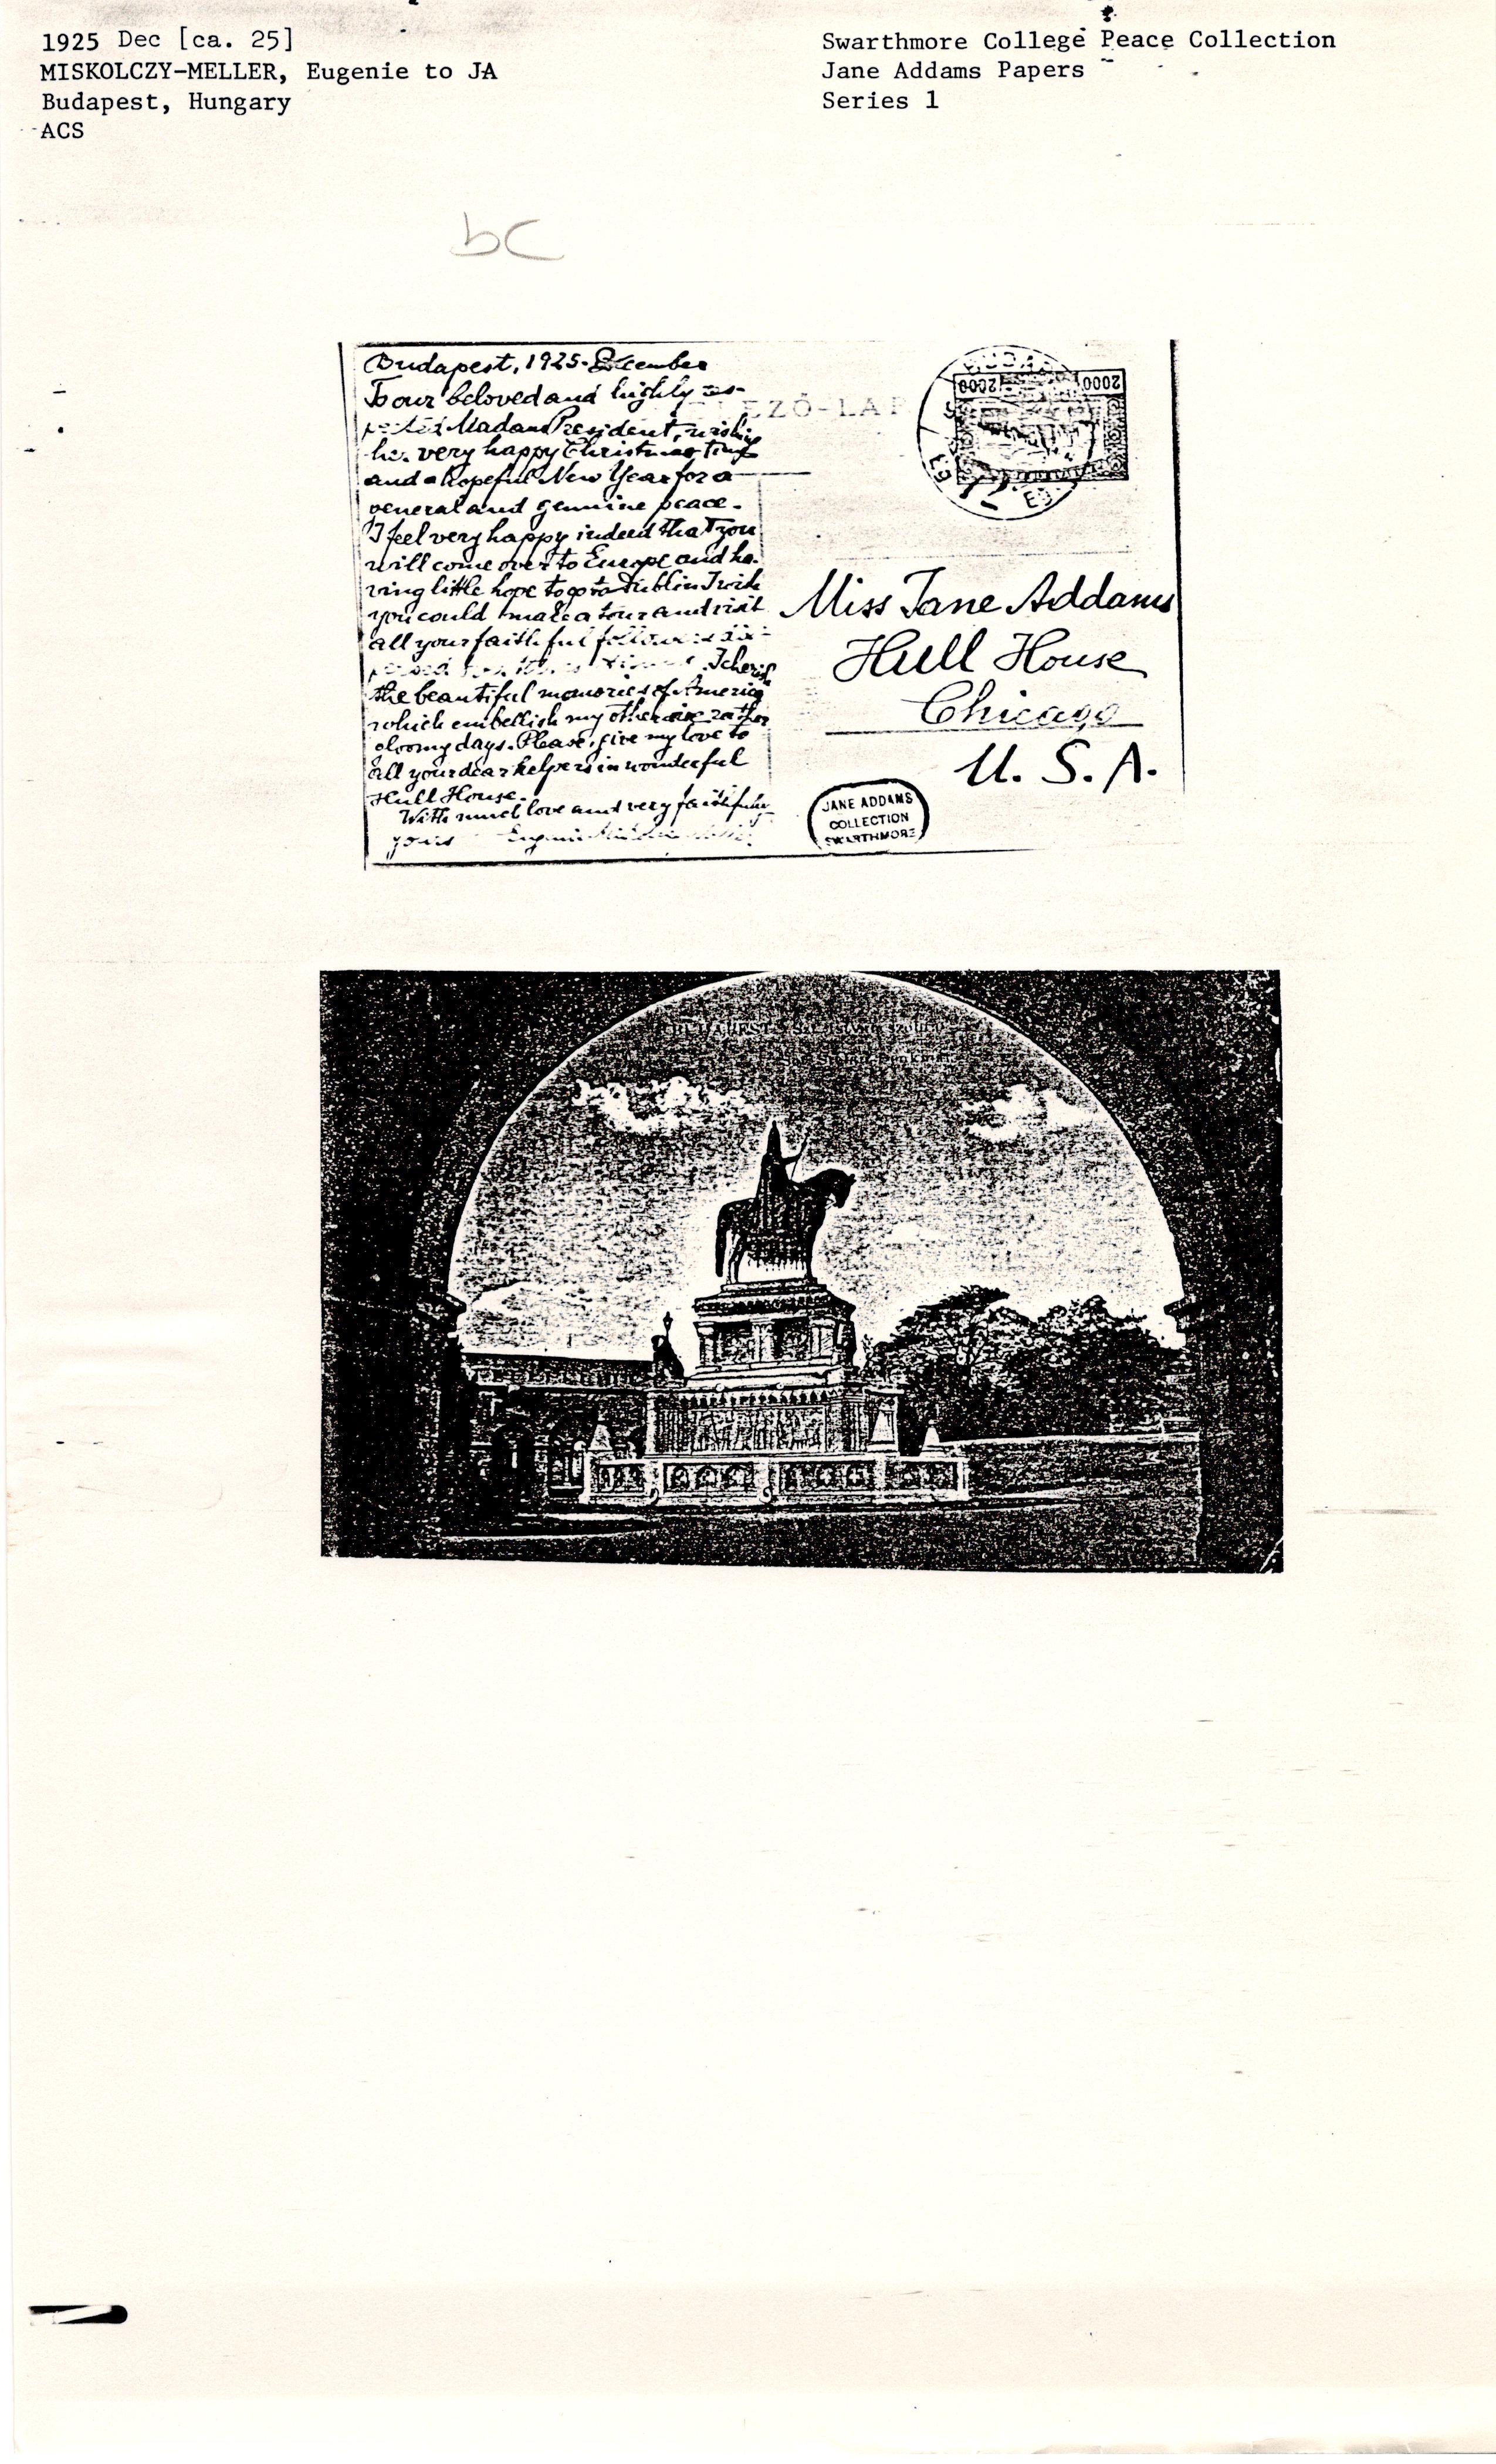 1925 Dec [ca. 25]
MISKOLCZY-MELLER, Eugenie to JA
Budapest, Hungary
ACS
Swarthmore College Peace Collection
Jane Addams Papers
Series 1
bC
Budapest, 1925. December
To our beloved and highly es-
Madam President, wishing
her very happy Christmas time
and a hopeful New Year for a
general and genuine peace.
I feel very happy indeed that you
will come over to Europe and ha-
ving little hope to go to Dublin I wish
you could make a tour and visit
all your faithful
I cherish
the beautiful memories of America
which embellish my otherwise rather
gloomy days. Please, give my love to
all your dear helpers in wonderful
Hull House.
With much love and very faithfully
yours Eugenie
EZŐ-LAP
2000 2000
Miss Jane Addams
Hull House
Chicago
U. S. A.
JANE ADDAMS
COLLECTION
SWARTHMORE
BUDAPEST